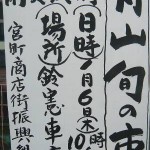 山旬の
(日時)1月6日(木)10時
(場所)鈴憲車
宮町商店街振興